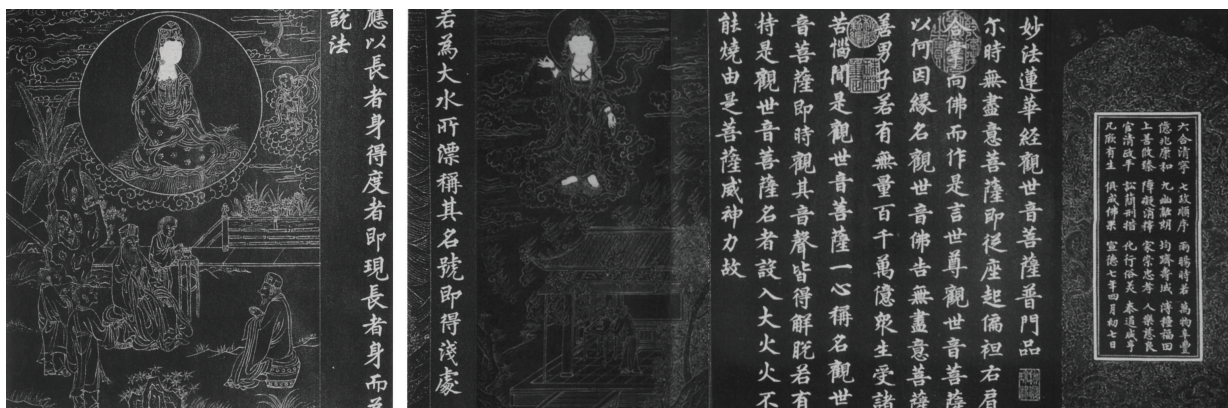 六合清寧 七政順序 雨暘時若 萬物阜豐
億兆康和 九幽融朗 均躋壽域 溥種福田
上善攸臻 障礙消釋 家崇忠孝 人樂慈良
官清政平 訟簡刑措 化行俗美 泰道咸亨
凡厥有生 俱成佛果 宣德七年四月初七日
妙法蓮華經觀世音菩薩普門品
尒時無盡意菩薩即從座起偏袒右肩
合掌向佛而作是言世尊觀世音菩薩
以何因緣名觀世音佛告無盡意菩薩
善男子若有無量百千萬億眾生受諸
苦惱聞是觀世音菩薩一心稱名觀世
音菩薩即時觀其音聲皆得解脫若有
持是觀世音菩薩名者設入大火火不
能燒由是菩薩威神力故
若為大水所漂稱其名號即得淺處
應以長者身得度者即現長者身而為
說法